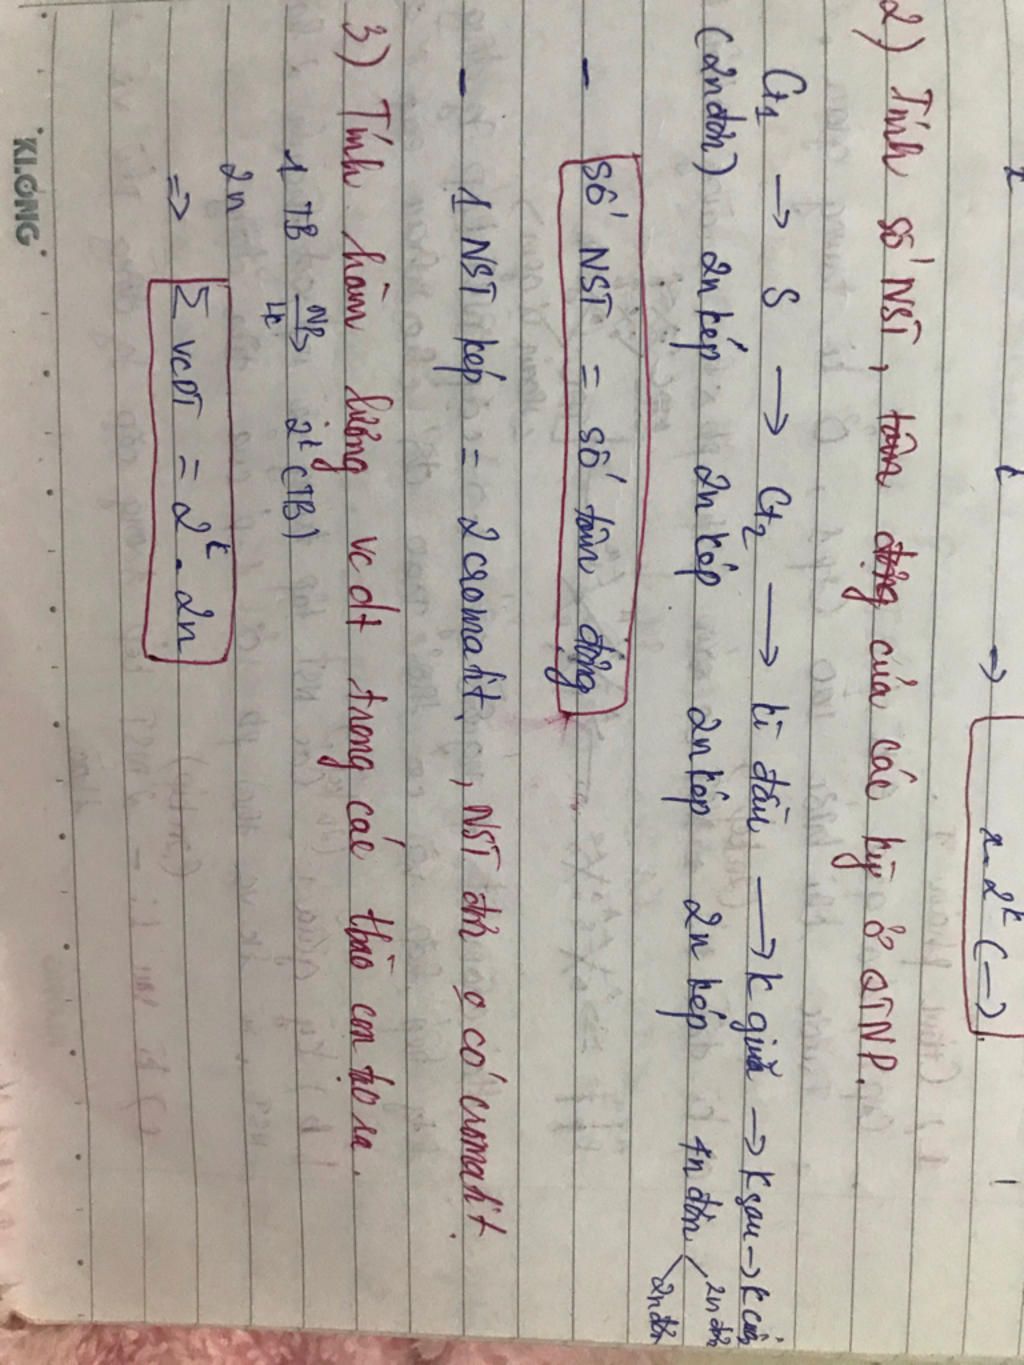 x.2ᵏ (→)
2) Tính số NST, tâm động của các kỳ ở QTNP.
Ct1 → S → Ct2 → kì đầu → K giữa → K sau → K cuối
(2n đơn) 2n kép 2n kép 2n kép 2n kép 4n đơn 2n đơn
2n đơn
- Số NST = số tâm động
- 1 NST kép = 2 cromatit, NST đơn 0 có cromatit.
3) Tính hàm lượng vcdt trong các tbào con tạo ra.
1 TB NP→ 2ᵏ (TB)
2n
⇒ Σ VCDT = 2ᵏ. 2n
KLONG